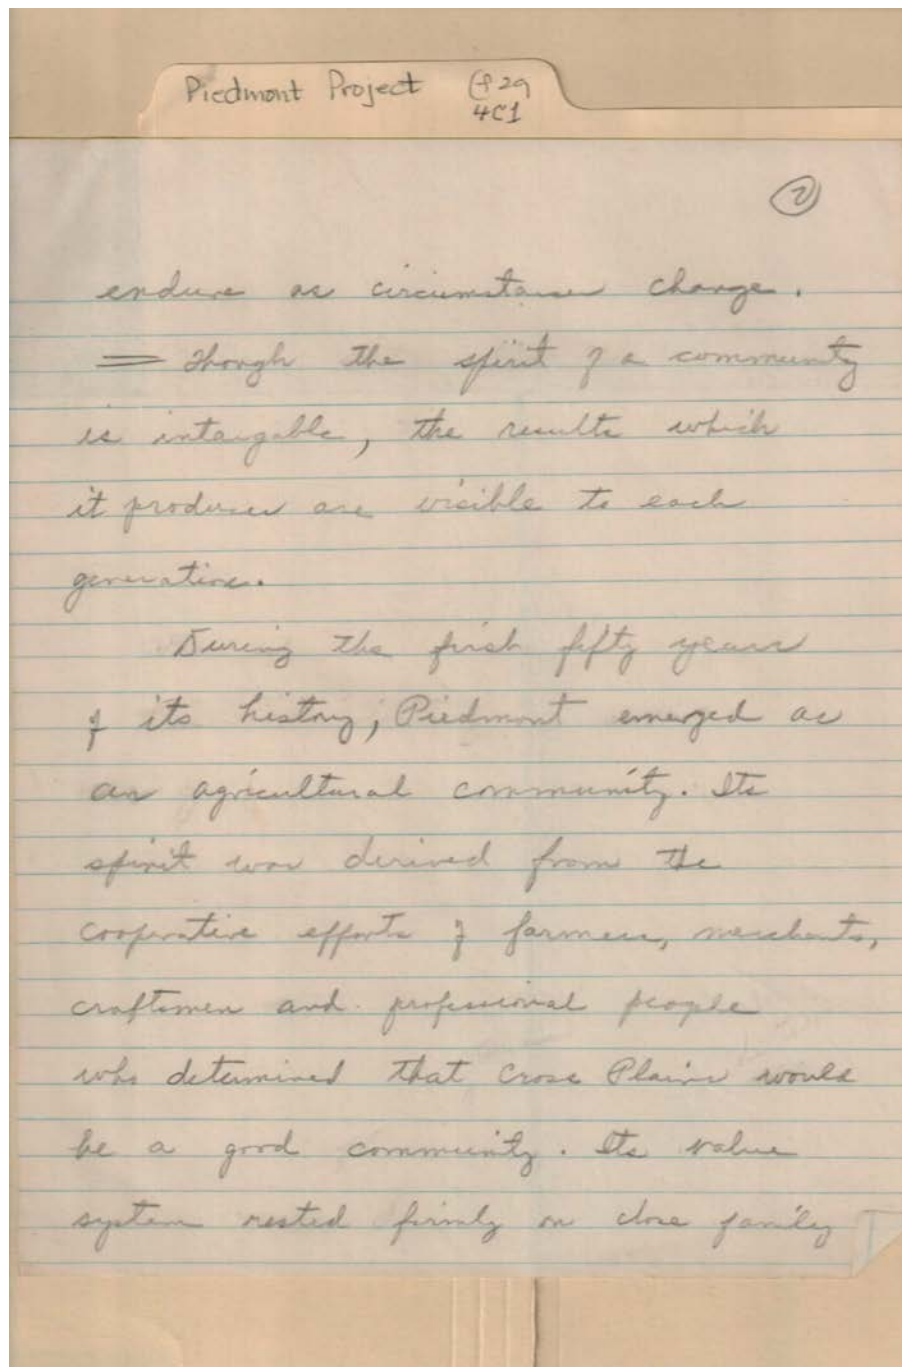 Piedmont Project
f29
4C1
2
endure as circumstances change.
= Though the spirit of a community
is intangible, the results which
it produces are visible to each
generation.
During the first fifty years
of its history, Piedmont emerged as
an agricultural community. Its
spirit was derived from the
cooperative efforts of farmers, merchants,
craftsmen and professional people
who determined that Cross Plains would
be a good community. Its value
system rested firmly on close family